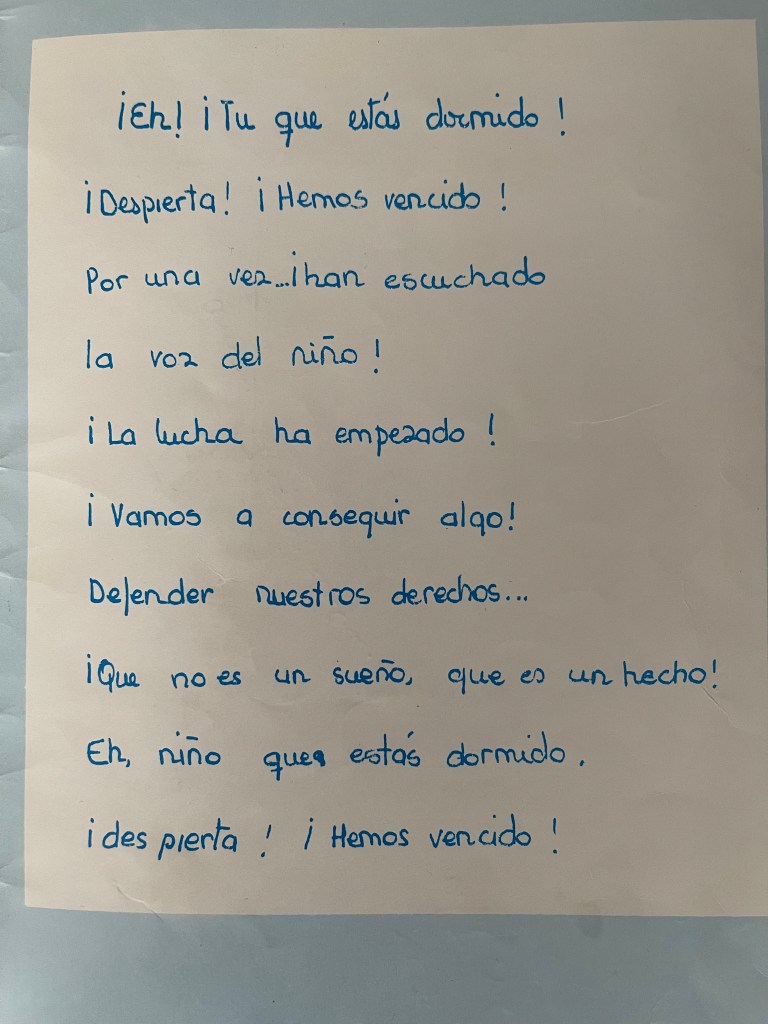 ¡Eh! ¡Tu que estás dormido!
¡Despierta! ¡Hemos vencido!
Por una vez...¡han escuchado
la voz del niño!
¡La lucha ha empezado!
¡Vamos a conseguir algo!
Defender nuestros derechos...
¡Que no es un sueño, que es un hecho!
Eh, niño que estás dormido.
¡des pierta! ¡Hemos vencido!